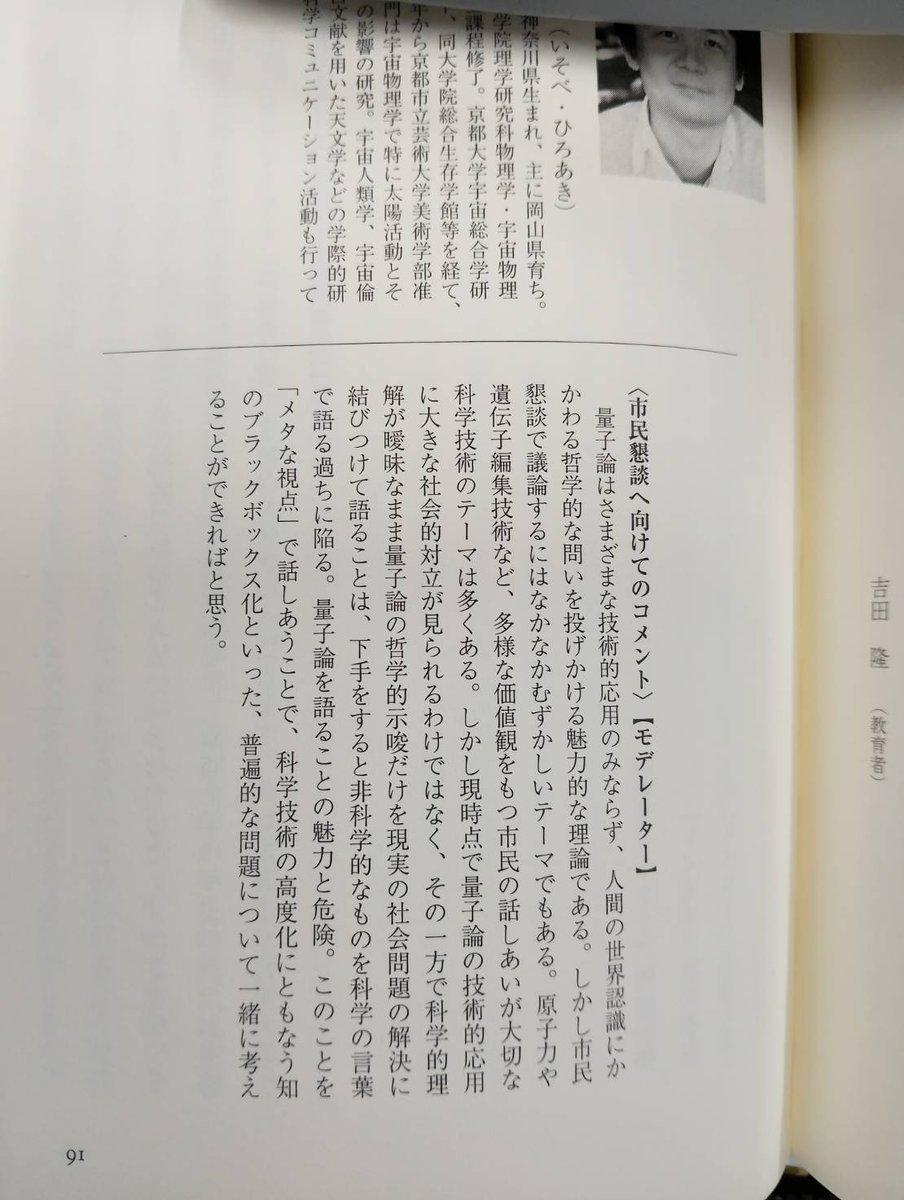 (いそべ・ひろあき)
神奈川県生まれ、主に岡山県育ち。
学院理学研究科物理学・宇宙物理
課程修了。京都大学宇宙総合学研
、同大学院総合生存学館等を経て、
年から京都市立芸術大学美術学部准
門は宇宙物理学で特に太陽活動とそ
の影響の研究。宇宙人類学、宇宙倫
文献を用いた天文学などの学際的研
学コミュニケーション活動も行って
〈市民懇談へ向けてのコメント〉【モデレーター】
量子論はさまざまな技術的応用のみならず、人間の世界認識にか
かわる哲学的な問いを投げかける魅力的な理論である。しかし市民
懇談で議論するにはなかなかむずかしいテーマでもある。原子力や
遺伝子編集技術など、多様な価値観をもつ市民の話しあいが大切な
科学技術のテーマは多くある。しかし現時点で量子論の技術的応用
に大きな社会的対立が見られるわけではなく、その一方で科学的理
解が曖昧なまま量子論の哲学的示唆だけを現実の社会問題の解決に
結びつけて語ることは、下手をすると非科学的なものを科学の言葉
で語る過ちに陥る。量子論を語ることの魅力と危険。このことを
「メタな視点」で話しあうことで、科学技術の高度化にともなう知
のブラックボックス化といった、普遍的な問題について一緒に考え
ることができればと思う。
91
吉田 隆 (教育者)